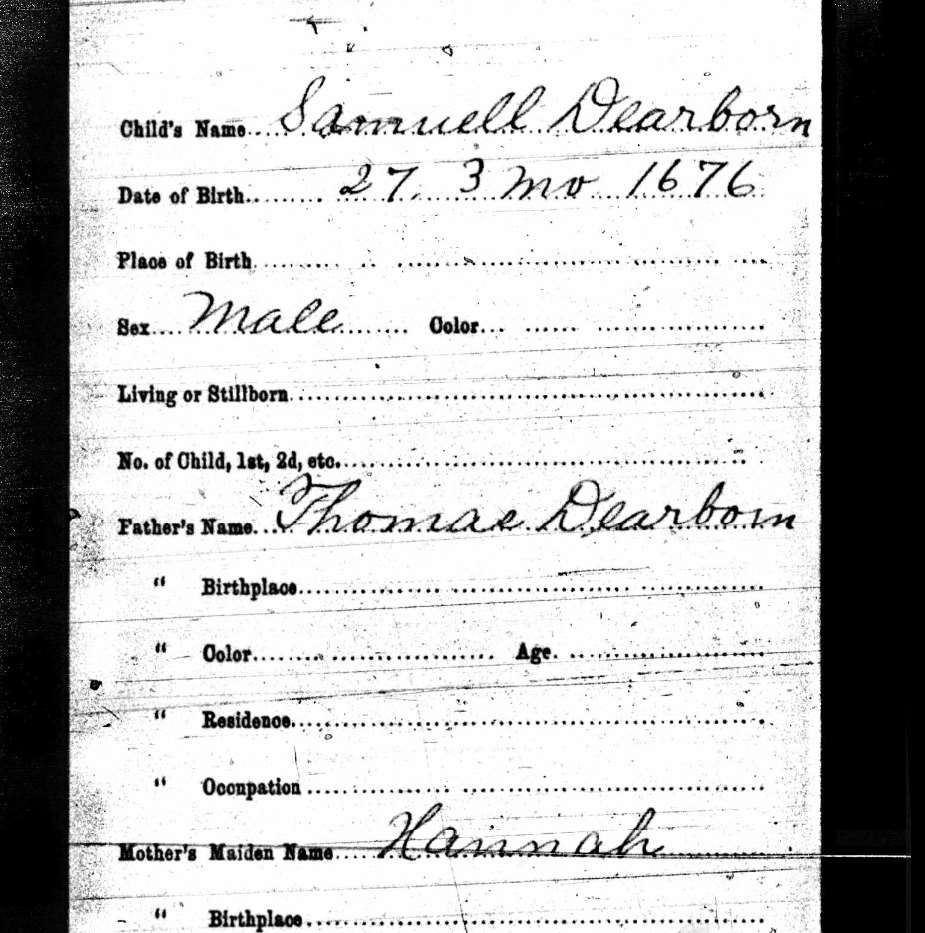 Child's Name Samuell Dearborn
Date of Birth 27. 3 mo 1676
Place of Birth
Sex Male Color
Living or Stillborn
No. of Child, 1st, 2d, etc.
Father's Name Thomas Dearborn
" Birthplace
" Color Age
" Residence
" Occupation
Mother's Maiden Name Hannah
" Birthplace